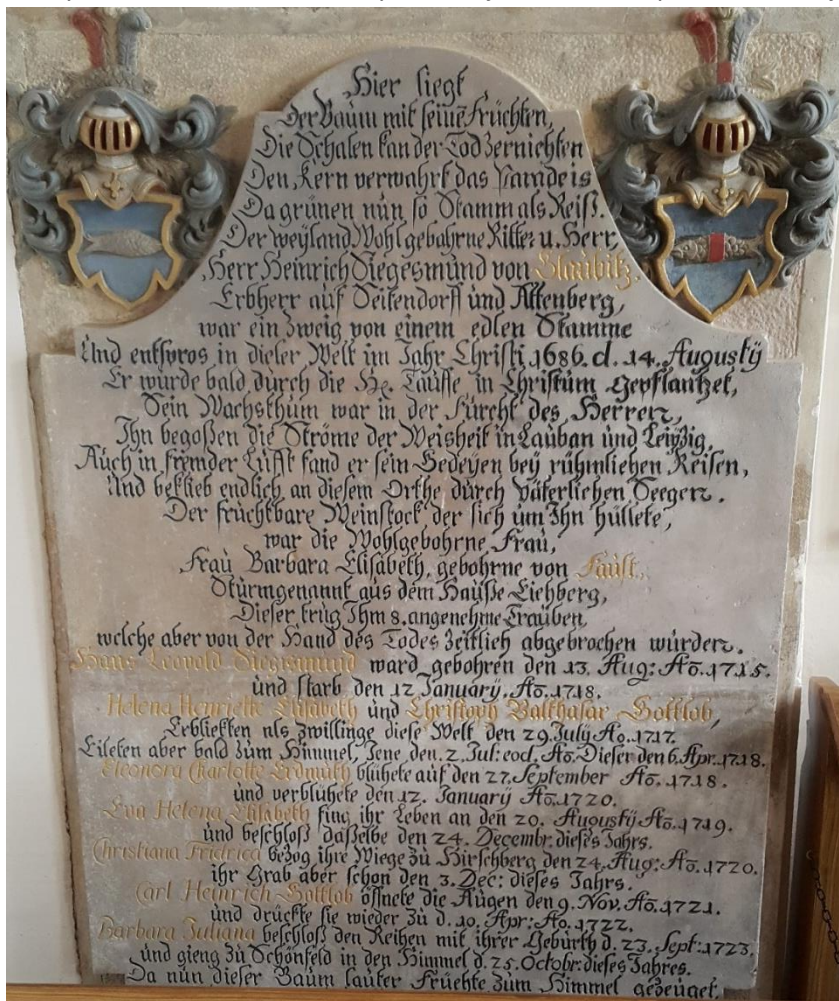 Hier liegt
Der Baum mit seinē Früchten,
Die Schalen kan der Tod zernichten
Den Kern verwahrt das Paradeis
Da grünen nun so Stamm als Reiß.
Der weyland Wohlgebahrne Ritter u. Herr,
Herr Heinrich Siegesmund von Glaubitz.
Erbherr auf Seitendorff und Altenberg,
war ein Zweig von einem edlen Stamme
Und entspros in dieser Welt im Jahr Christi 1686. d. 14. Augustÿ
Er wurde bald durch die He. Tauffe in Christum gepflantzet,
Sein Wachsthum war in der Furcht des Herren,
Ihn begoßen die Ströme der Weisheit in Lauban und Leipzig,
Auch in fremder Lufft fand er sein Gedeyen bey rühmlichen Reisen,
Und beklieb endlich an diesem Orthe durch väterlichen Seegen.
Der fruchtbare Weinstock der sich um Ihn hüllete,
war die Wohlgebohrne Frau,
Frau Barbara Elisabeth, gebohrne von Faust,
Sturmgenannt aus dem Hauße Eichberg,
Dieser trug Ihm 8. angenehme Trauben,
welche aber von der Hand des Todes zeitlich abgebrochen wurden.
Hans Leopold Siegismund ward gebohren den 13. Aug: Aō. 1715.
und starb den 12 Januarÿ. Aō. 1718.
Helena Henriette Elisabeth und Christoph Balthasar Gottlob,
Erblickten als zwillinge diese Welt den 29. July Ao. 1717.
Eileten aber bald zum Himmel, Jene den. 2. Jul: eod. Aō. Dieser den 6. Apr. 1718.
Eleonora Charlotte Erdmuth blühete auf den 27. September Aō. 1718.
und verblühete den 12. Januarÿ Aō. 1720.
Eva Helena Elisabeth fing ihr Leben an den 20. Augustÿ Aō. 1719.
und beschloß daßelbe den 24. Decembr. dieses Jahrs.
Christiana Fridrica bezog ihre Wiege zu Hirschberg den 24. Aug: Aō. 1720.
ihr Grab aber schon den 3. Dec: dieses Jahrs.
Carl Heinrich Gottlob öffnete die Augen den 9. Nov. Aō. 1721.
und drückte sie wieder zu d. 10. Apr: Ao. 1722.
Barbara Juliana beschloß den Reihen mit ihrer Geburth d. 23. Sept: 1723.
und gieng zu Schönfeld in den Himmel d. 25. Octobr: dieses Jahres.
Da nun dieser Baum lauter Früchte zum Himmel gezeuget.